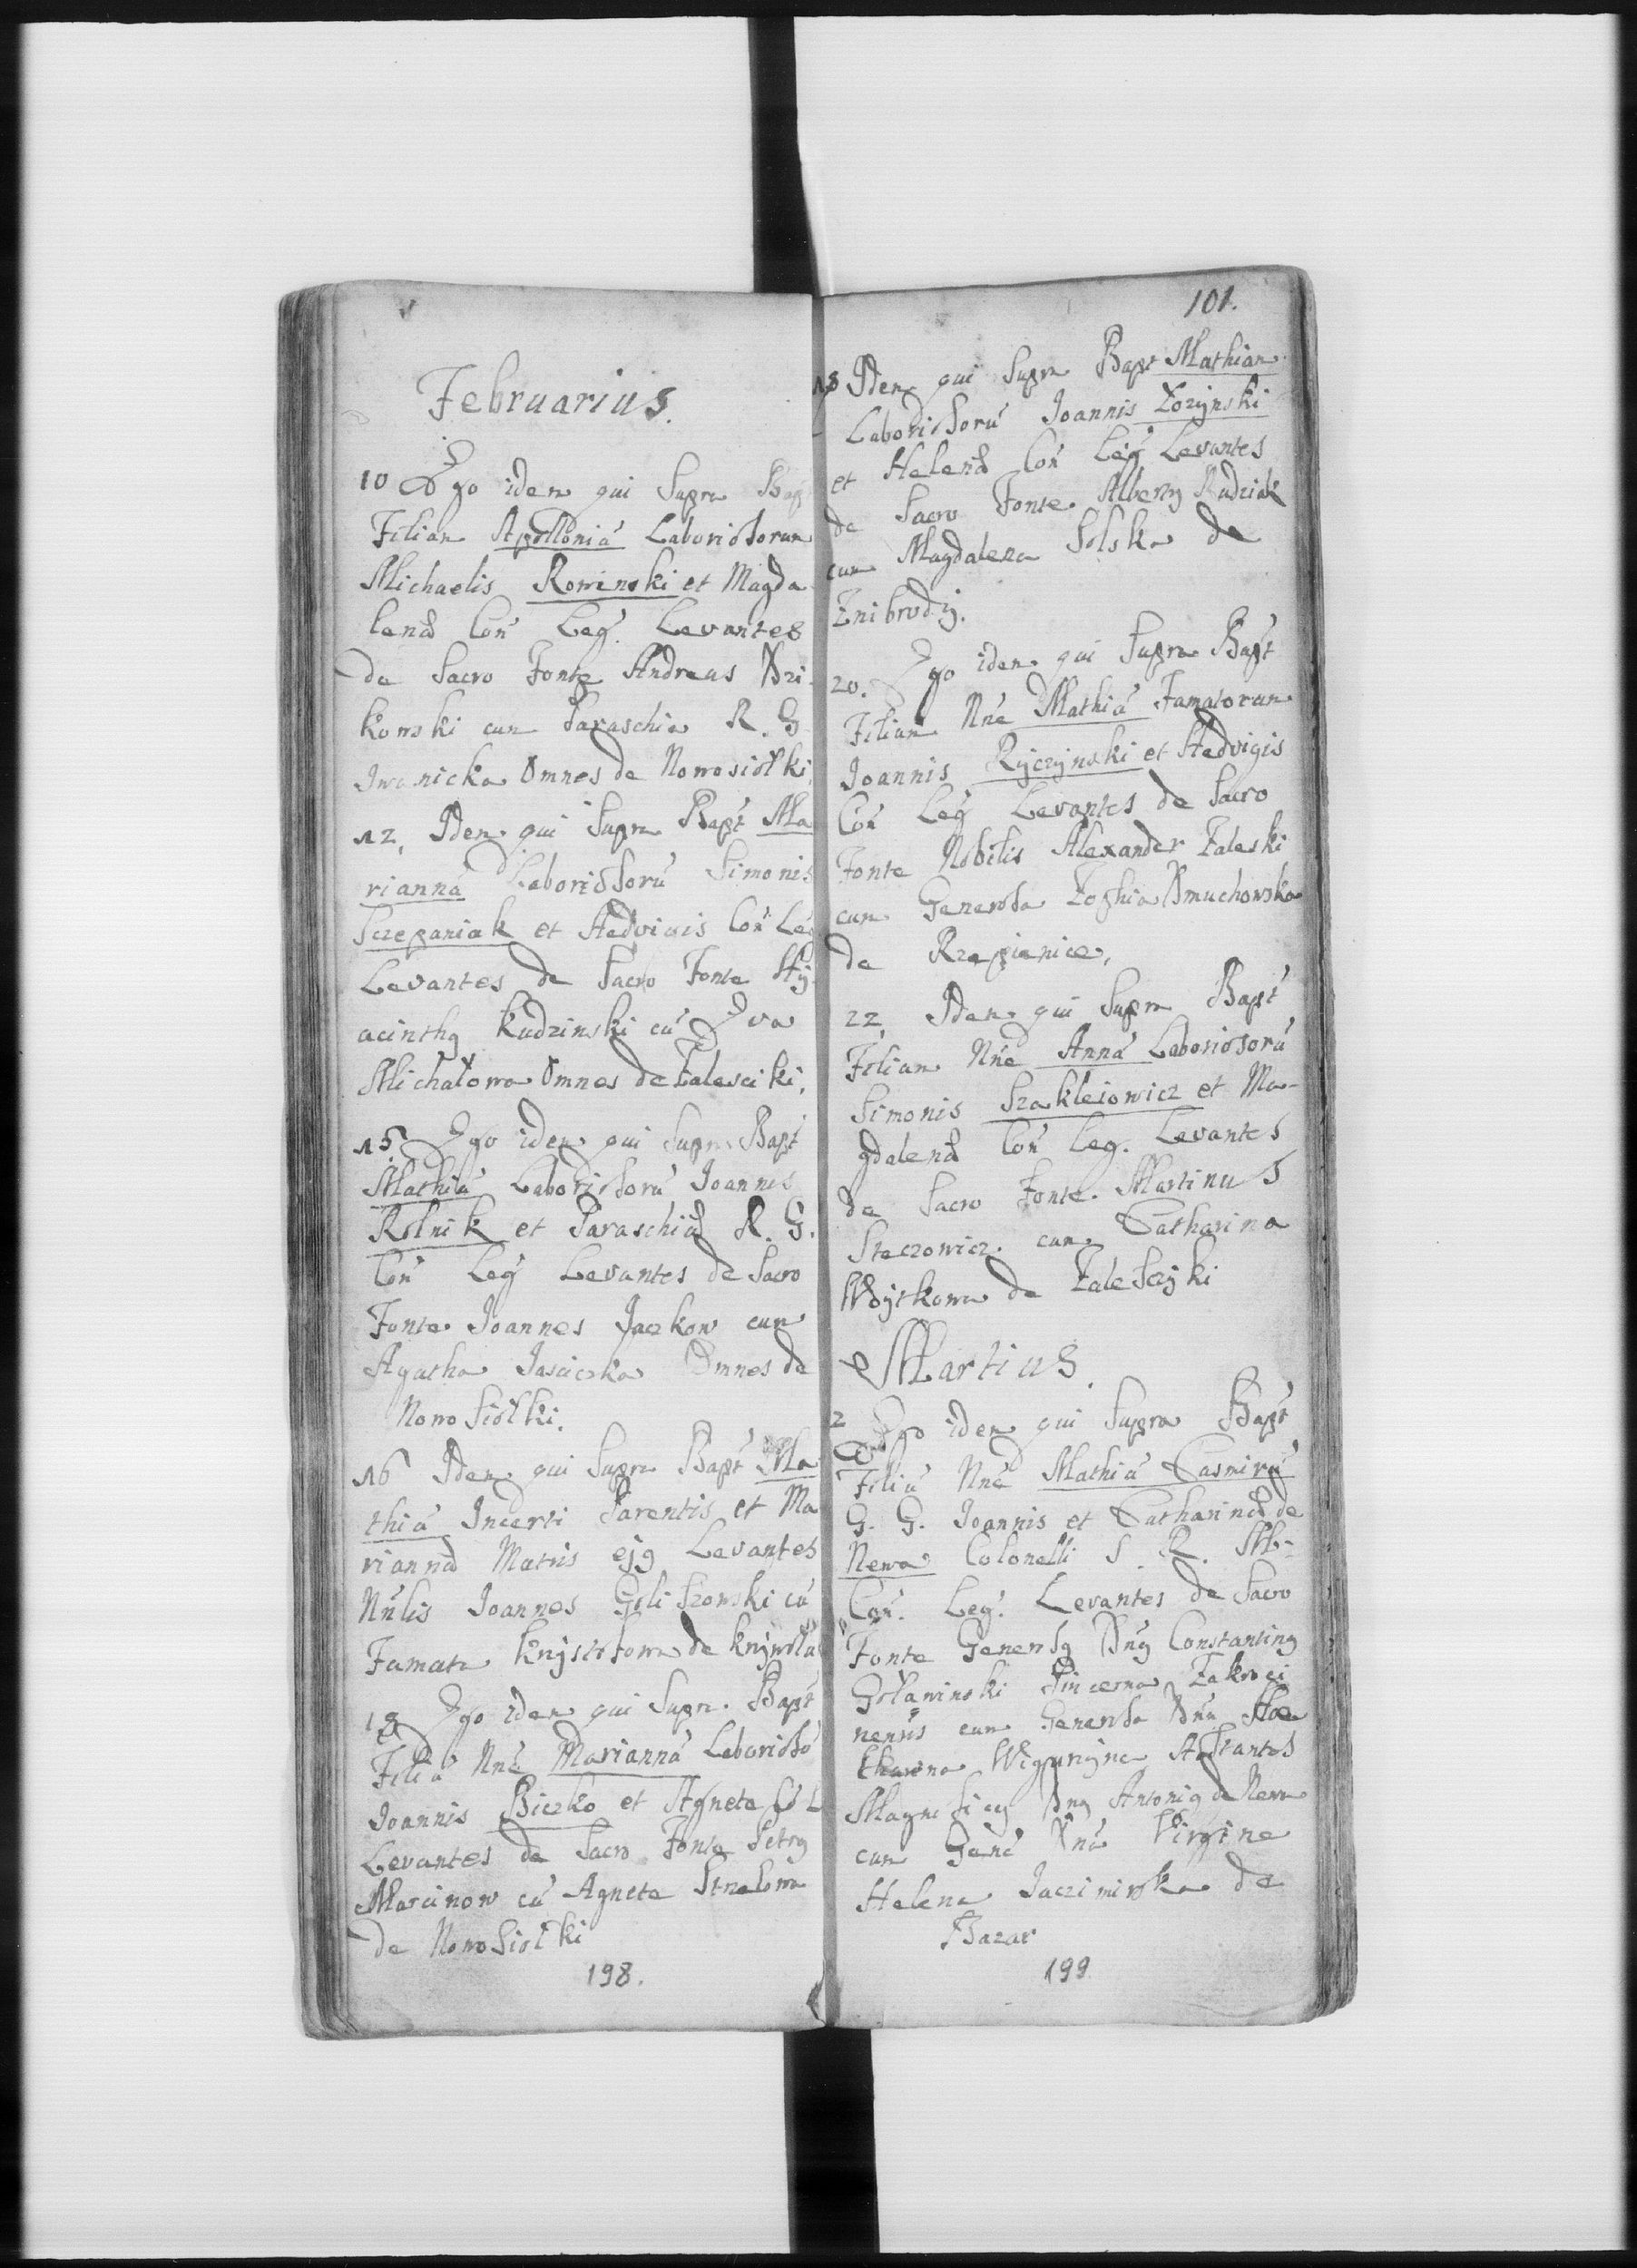 Februarius.
10 Ego idem qui Supra Bap
Filiam Apolloniã Laboriosorum
Michaelis Rowinski et Magda
lenæ Coñ Leg. Levantes
de Sacro Fonte Andreas Dzi
kowski cum Paraschia R. G
Iwanicka Omnes de Nowosiołki.
12, Idem qui Supra Bapt̃ Ma
riannã Laboriosorũ Simonis
Sczepaniak et Hedvigis Coñ Leg
Levantes de Sacro Fonte Hy
acinthq Kudzinski cũ Eva
Michałowa Omnes de Zalesciki,
15. Ego idem qui Supra Bapt̃
Mathiã Laboriosorũ Joannis
Rolnik et Paraschiæ R. G.
Coñ Leg̃ Levantes de Sacro
Fonte Joannes Jaczkow cum
Agatha Omnes de
Nowosiołki.
16 Idem qui Supra Bapt̃ Ma
thiã Incerti Parentis et Ma
riannæ Matris ejq Levantes
Nũlis Joannes Goliszowski cũ
Famata Krysztofowa de
18 Ego idem qui Supra Bapt̃
Filiã Nñe Mariannã Laborioso
Joannis Biczko et Agneta Co L
Levantes de Sacro Fonte Petrq
Marcinow cũ Agneta
de Nowosiołki
198.
101.
18 Idem qui Supra Bapt Mathiam
Laboriosorũ Joannis Łozynski
et Helenæ Coñ Leg̃ Levantes
de Sacro Fonte Albertq Rudziak
cum Magdalena Solska de
Znibrody.
20. Ego idem qui Supra Bapt̃
Filium Nñe Mathiã Famatorum
Joannis Ryczynski et Hedvigis
Coñ Leg̃ Levantes de Sacro
Fonte Nobilis Alexander Zaleski
cum Generosa Zophia Dmuchowska
de Rzepienice,
22, Idem qui Supra Bapt̃
Filiam Nñe Annã Laboriosorũ
Simonis Szakleiowicz et Ma-
gdalenæ Coñ Leg. Levantes
de Sacro Fonte Martinus
Steczowicz cum Catharina
Woytkowa de Zalesczyki
Martius.
2 Ego idem qui Supra Bapt̃
Filiũ Nñe Mathiã Casmirũ
G. G. Joannis et Catharinæ de
Newa Colonelli S. R. M-
Coñ. Leg. Levantes de Sacro
Fonte Generosq Dñq Constantinq
Goławinski Pincerna Zakroci
nensis cum Generosa Dña
tharina Assistantes
Magnificq Dnq Antoniq de Newa
cum Geñe Dña Virgine
Helena Jaczimirska de
Bazar
199